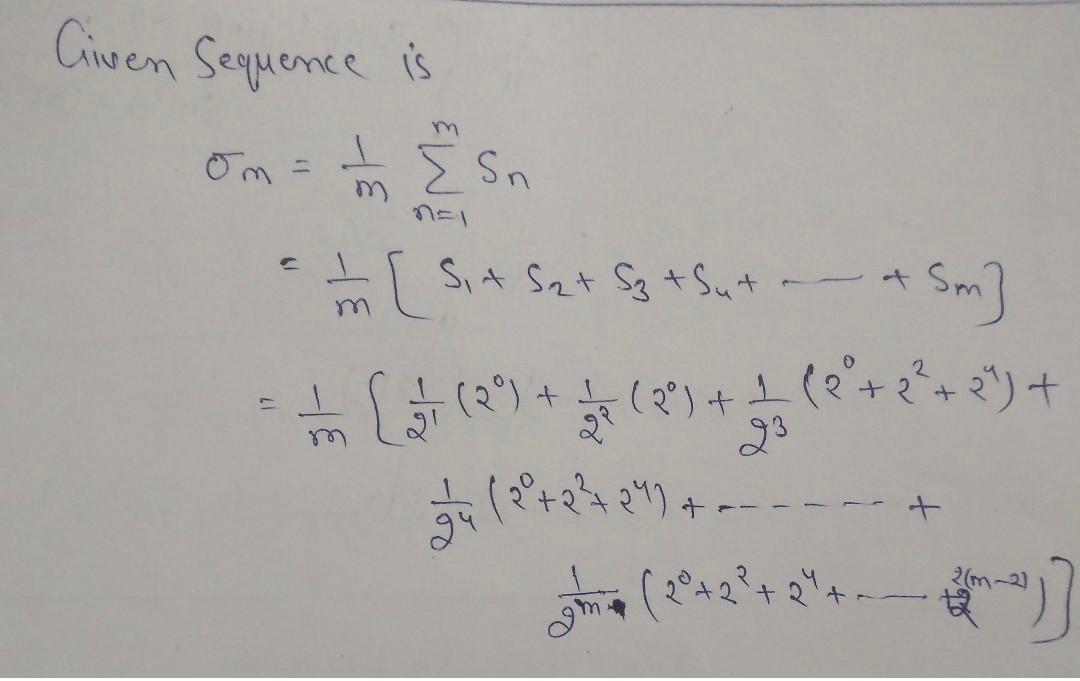 Given Sequence is
σm = 1/m Σ_{n=1}^{m} Sn
= 1/m [ S1 + S2 + S3 + S4 + —— + Sm ]
= 1/m [ 1/2^1 (2^0) + 1/2^2 (2^0) + 1/2^3 (2^0 + 2^2 + 2^4) +
1/2^4 (2^0 + 2^2 + 2^4) + ------- +
1/2^m (2^0 + 2^2 + 2^4 + —— + 2^{2(m-2)}) ]